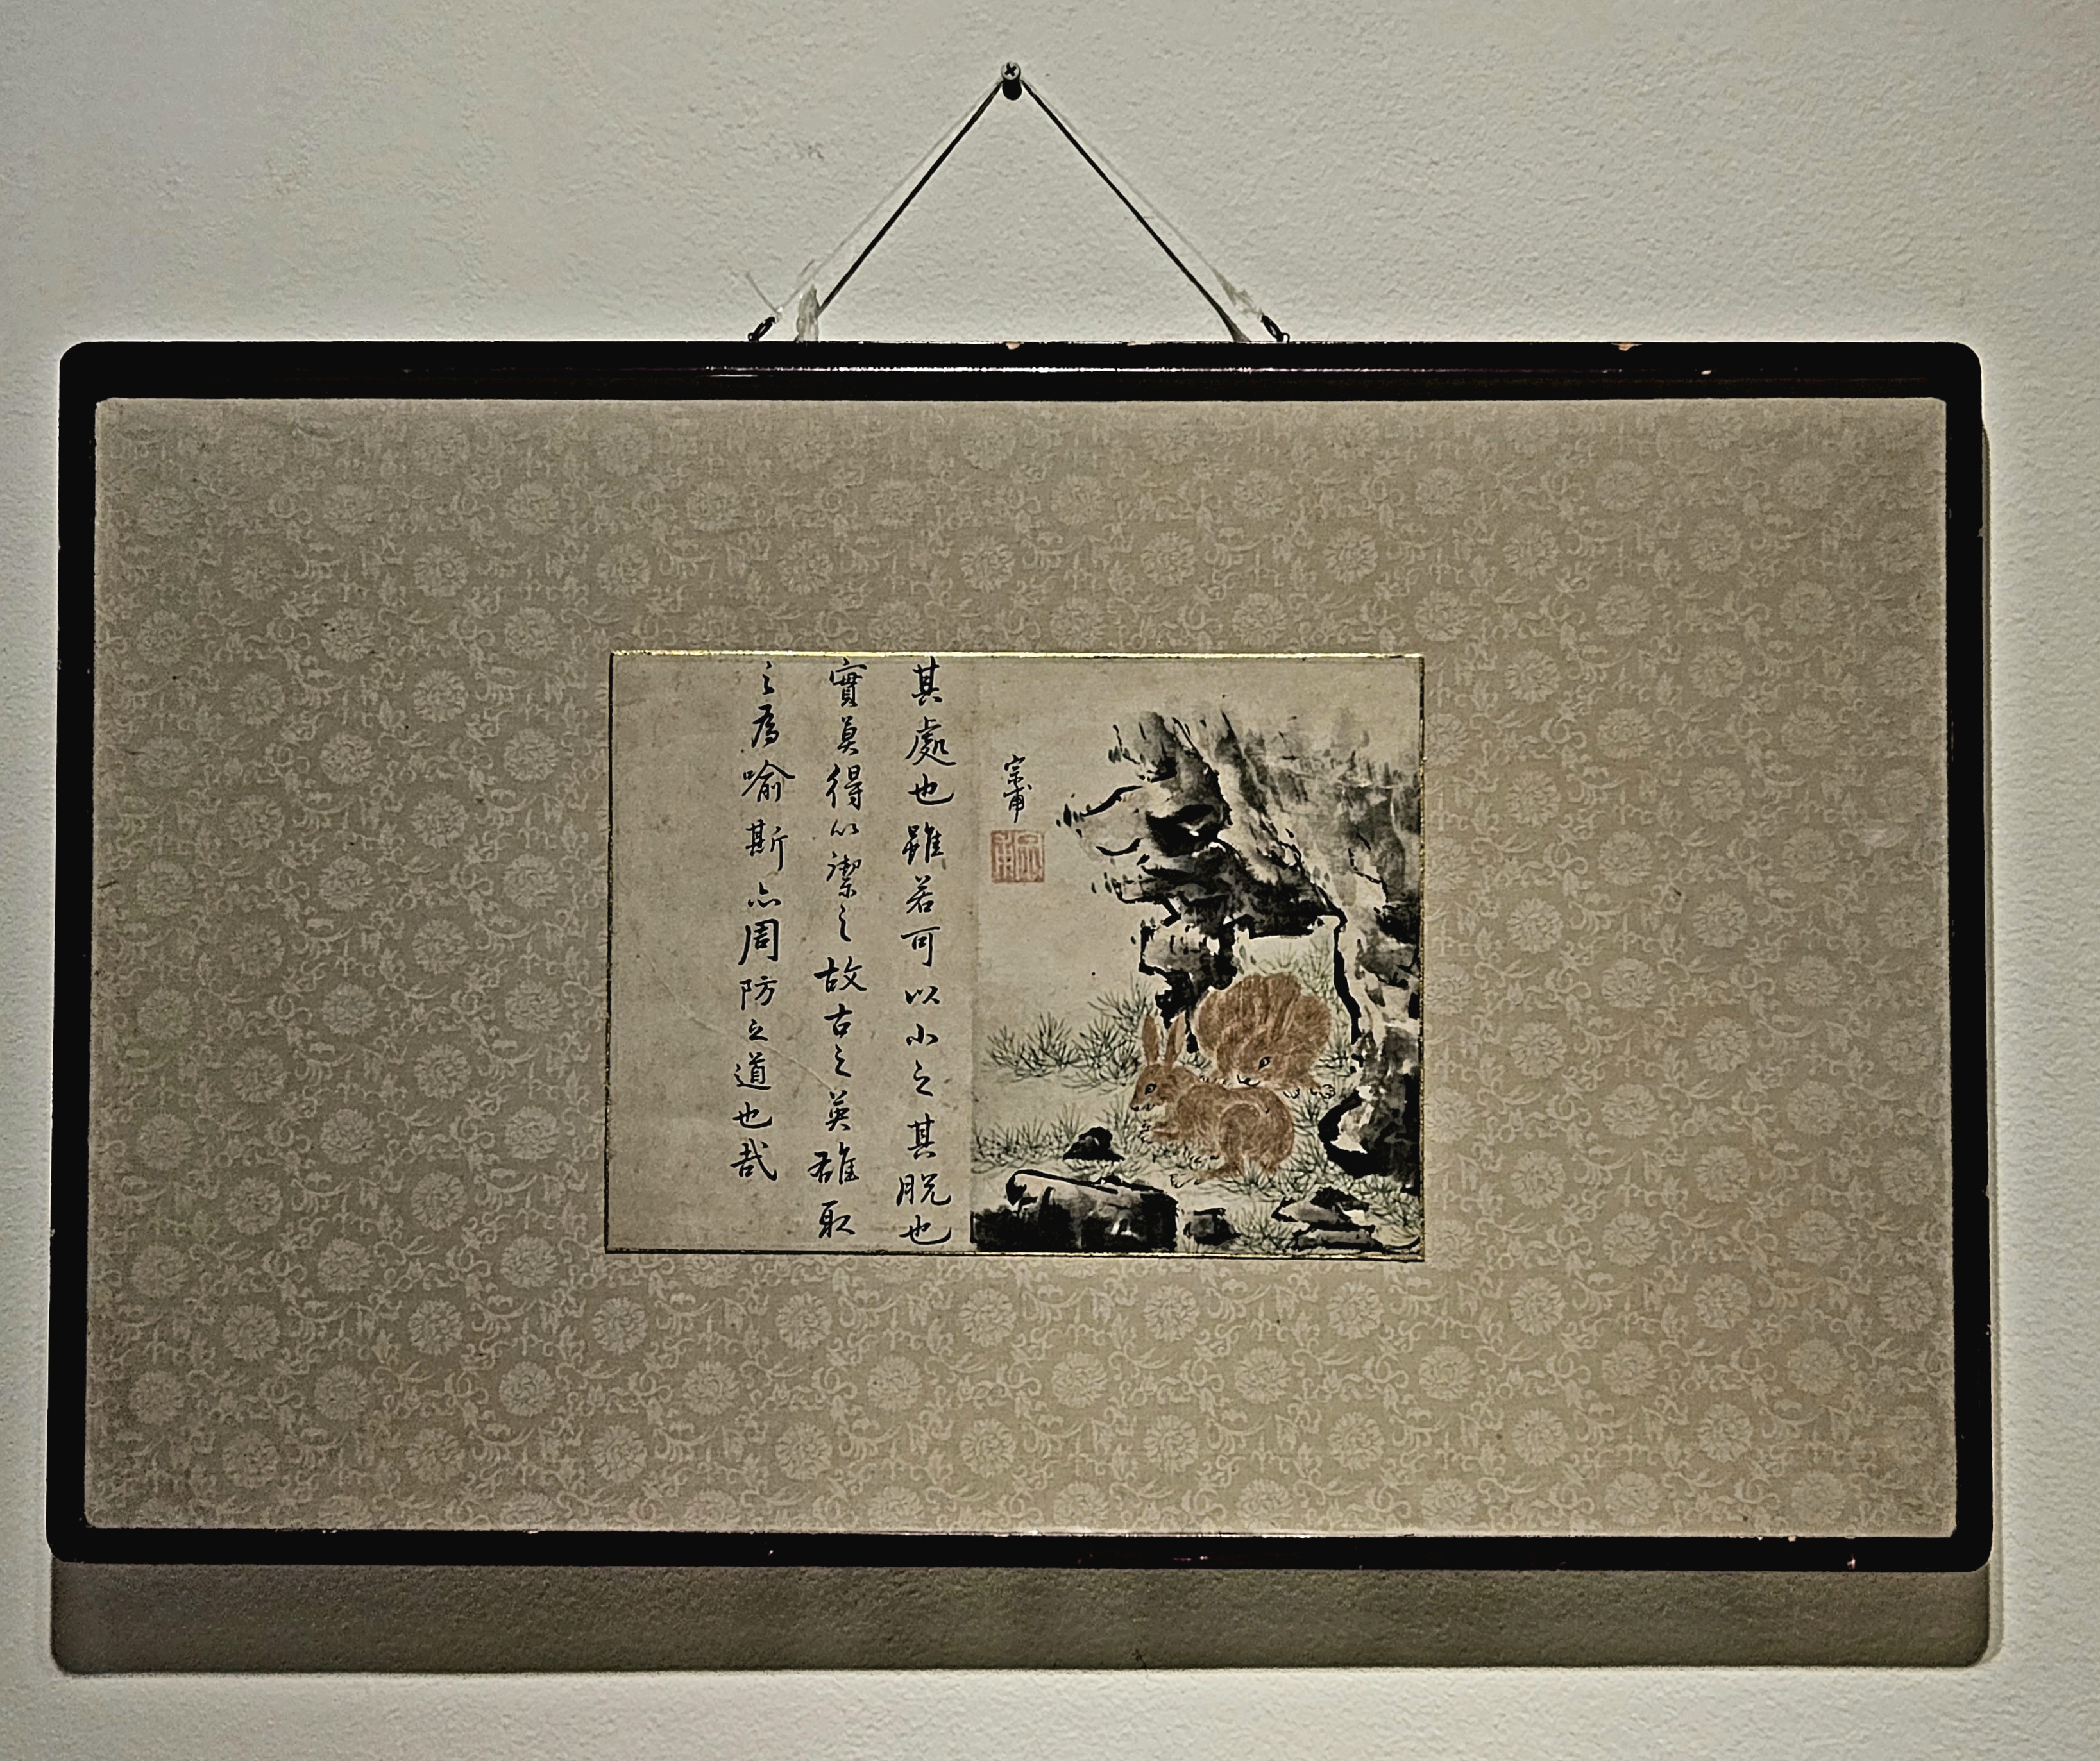 宗甫
其處也雖若可以小之其脫也
實莫得以潔之故古之英雄取
之為喻斯亦周防之道也哉